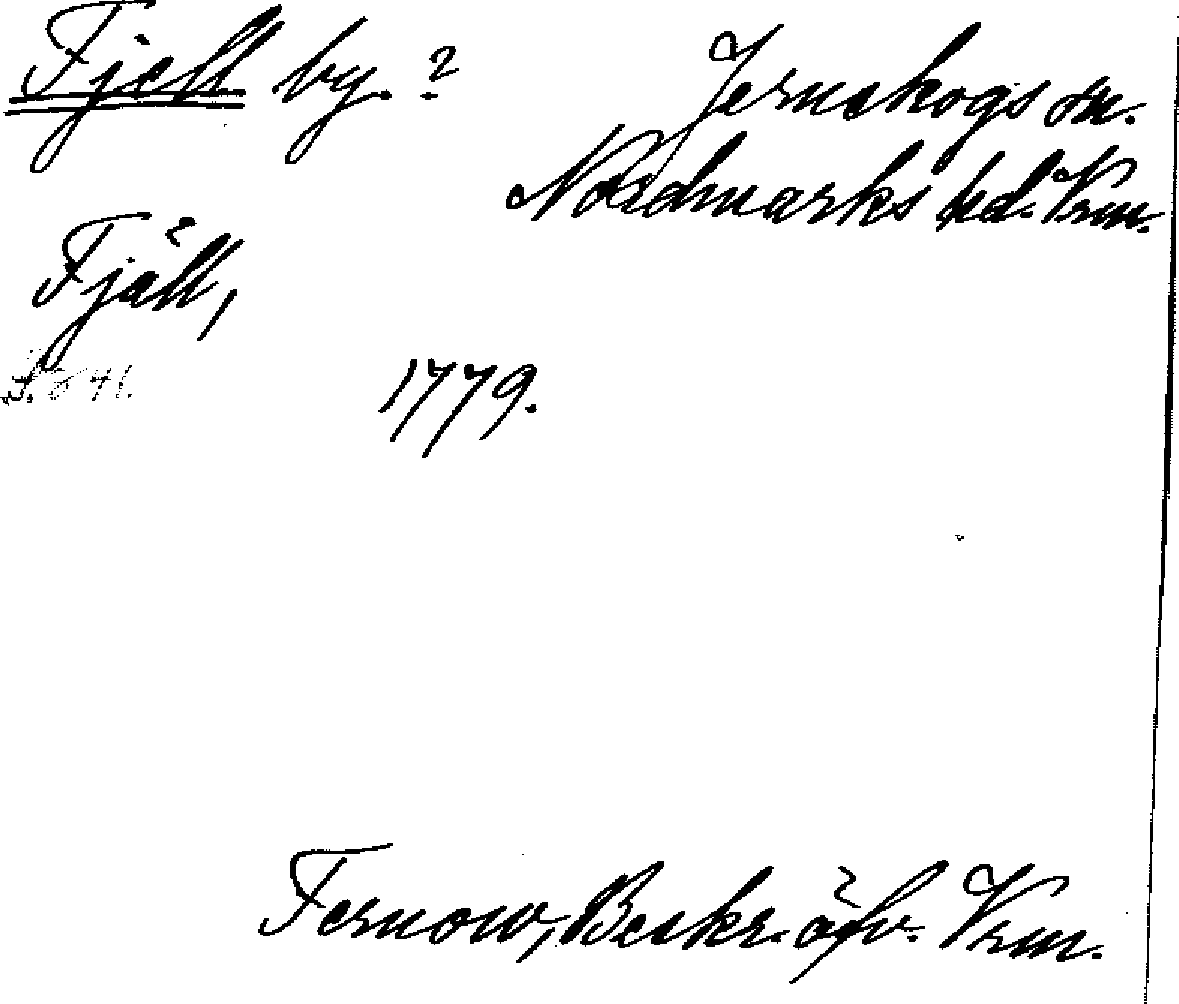 Fjell by. ?
Jernskogs sn.
Nordmarks hd. Vrm.
Fjäll,
1779.
Fernow, Beskr. öfv. Vrm.